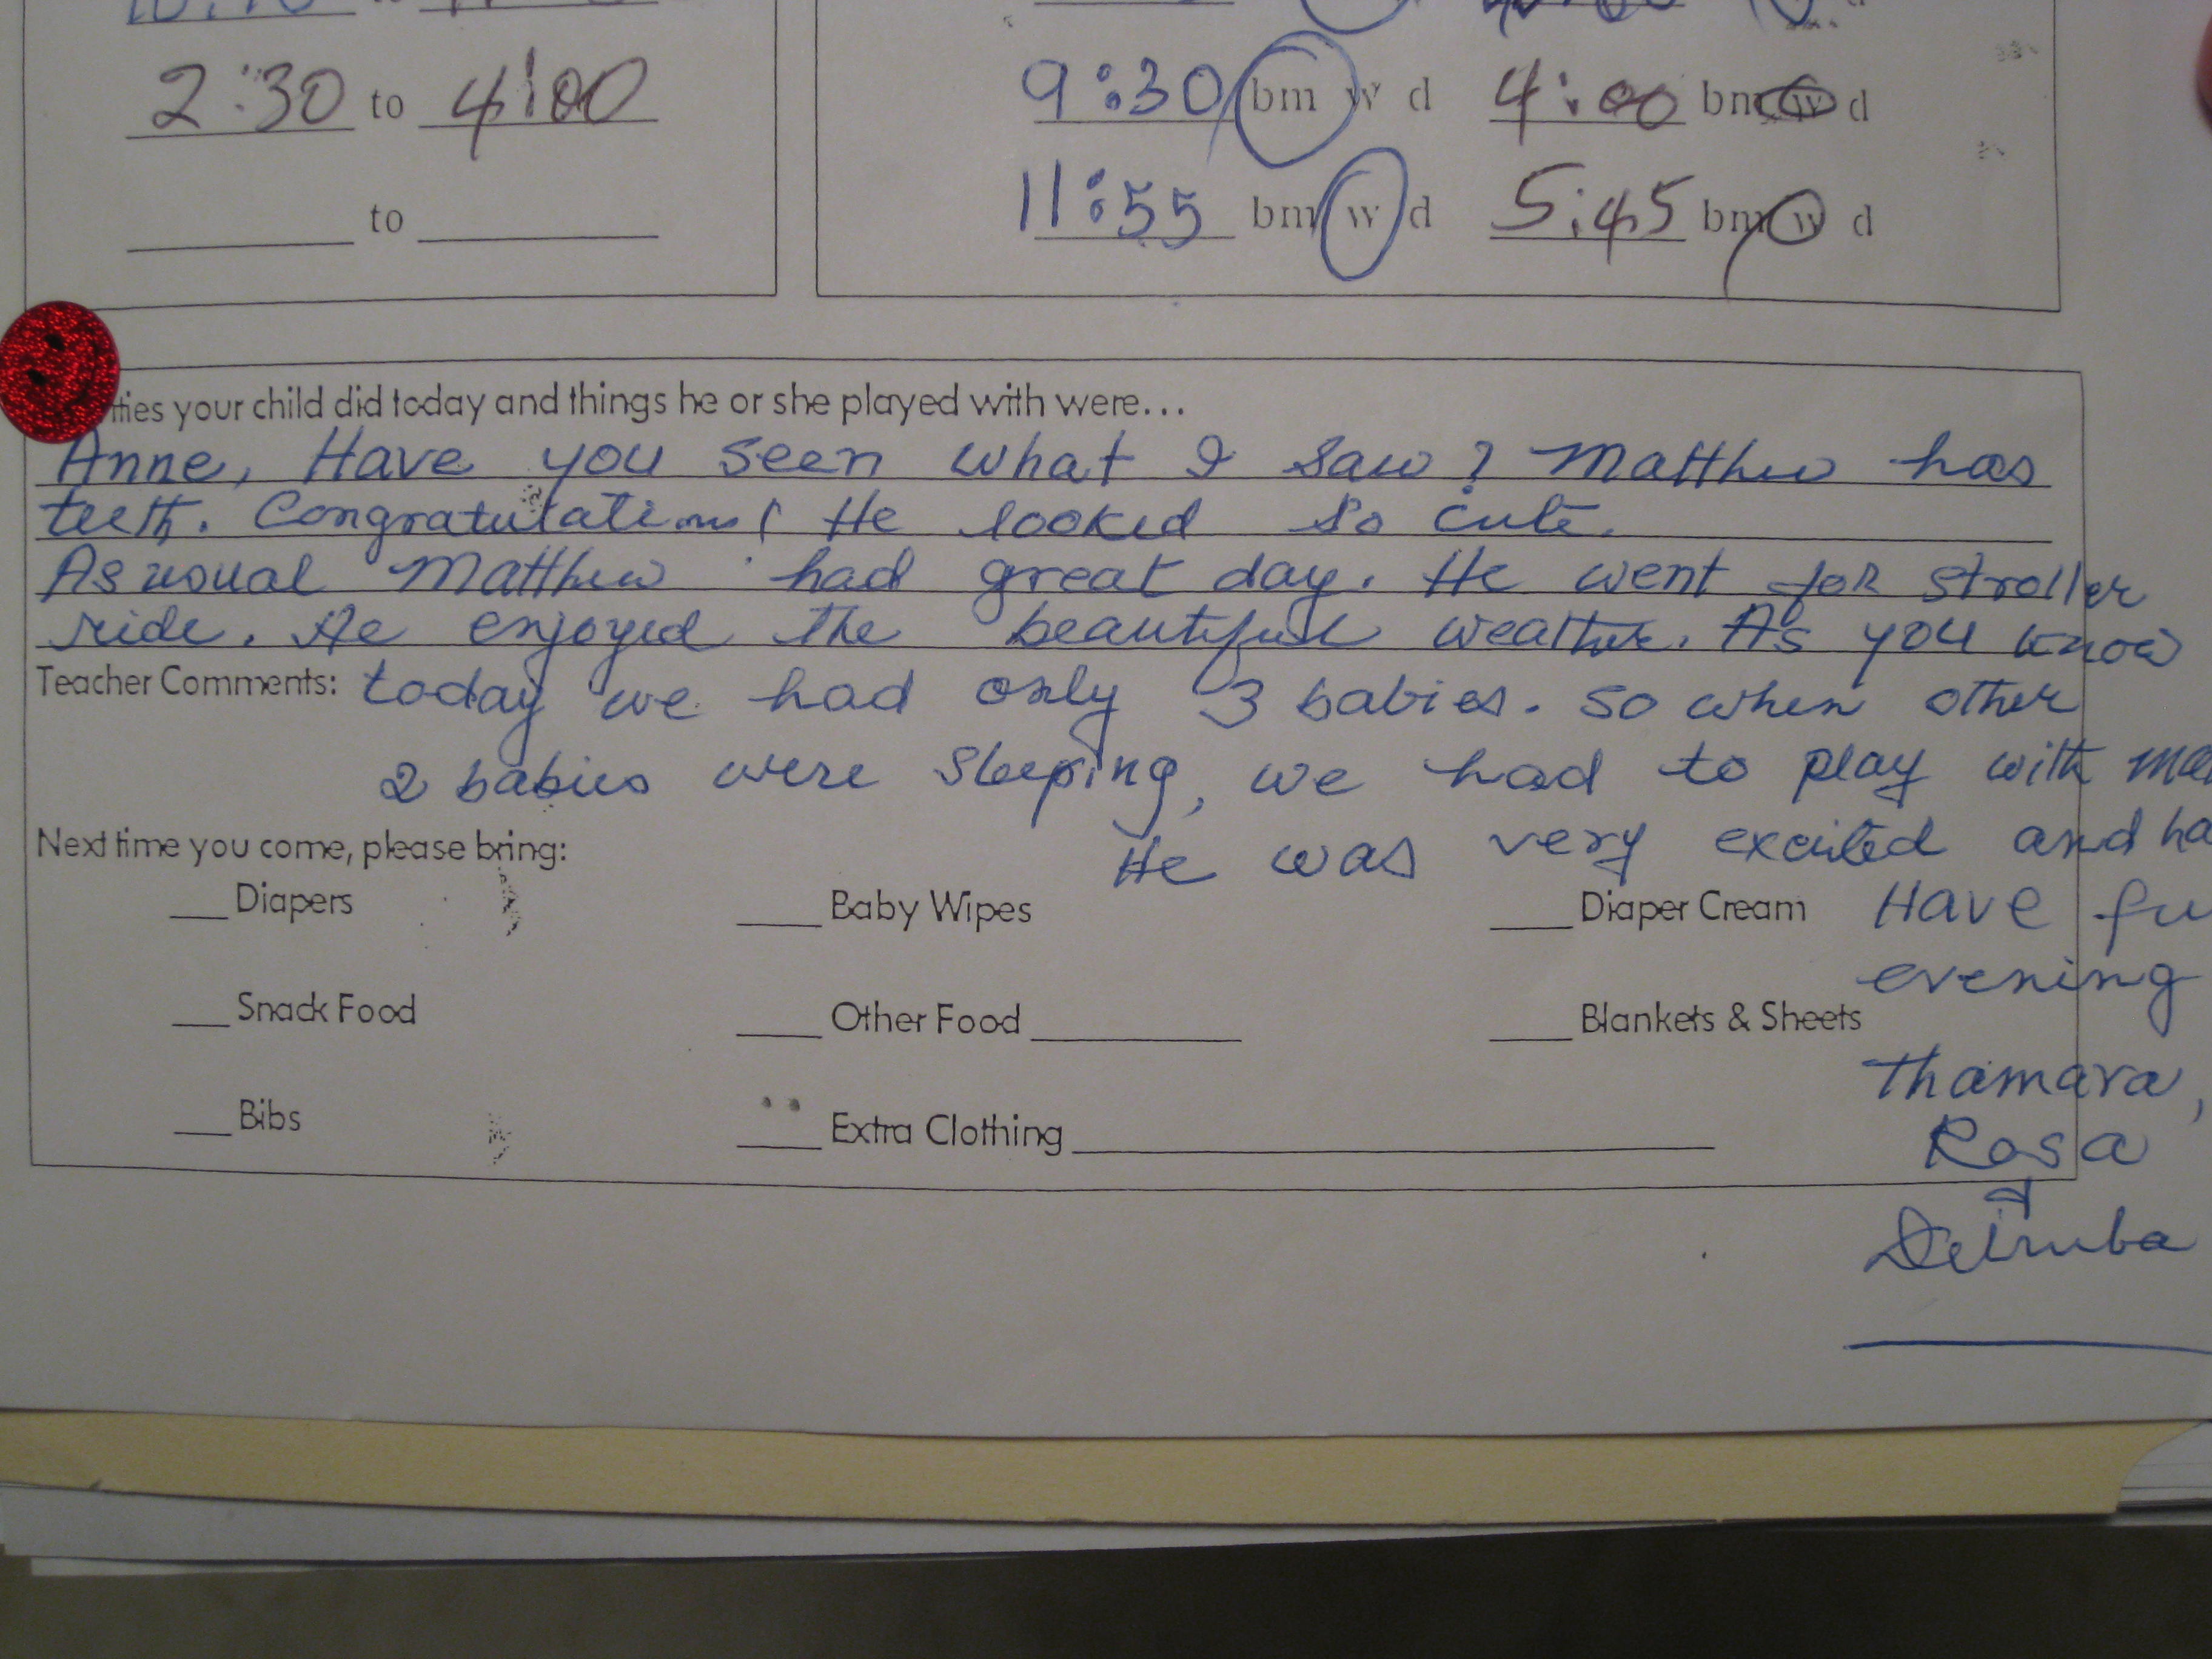 2:30 to 4:00
to
9:30 bm w d 4:00 bm w d
11:55 bm w d 5:45 bm w d
ties your child did today and things he or she played with were...
Anne, Have you seen what I saw? Matthew has
teeth. Congratulations! He looked so cute.
As usual Matthew had great day. He went for stroller
ride. He enjoyed the beautiful weather. As you know
Teacher Comments: today we had only 3 babies. so when other
2 babies were sleeping, we had to play with
He was very excited and
Next time you come, please bring:
Diapers Baby Wipes Diaper Cream Have
evening
Snack Food Other Food Blankets & Sheets
Thamara,
Bibs Extra Clothing Rosa
Delruba